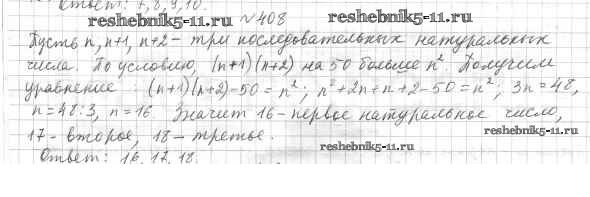 Ответ: 7,8,9,10.
reshebnik5-11.ru №408 reshebnik5-11.ru
Пусть n, n+1, n+2 – три последовательных натуральных
числа. По условию, (n+1)(n+2) на 50 больше n². Получим
уравнение: (n+1)(n+2)-50=n²; n²+2n+n+2-50=n²; 3n=48,
n=48:3, n=16. Значит 16 – первое натуральное число,
17 – второе, 18 – третье. reshebnik5-11.ru
Ответ: 16, 17, 18. reshebnik5-11.ru